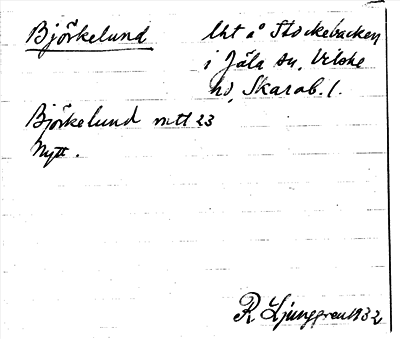 Björkelund
lht å Stockebacken
i Jäla sn, Vilske
hd, Skarab. l.
Björkelund mtl 23
Nytt.
R Ljunggren 1932